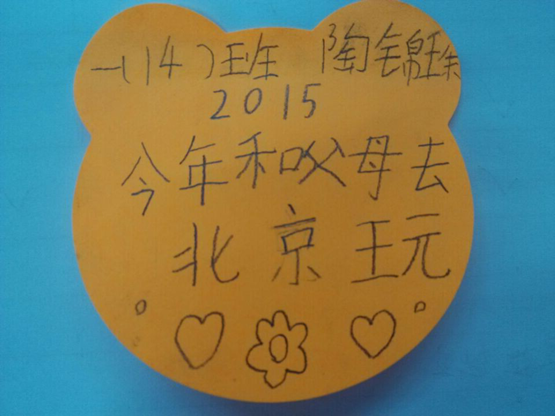 一(14)班 陶锦
2015
今年和父母去
北京玩